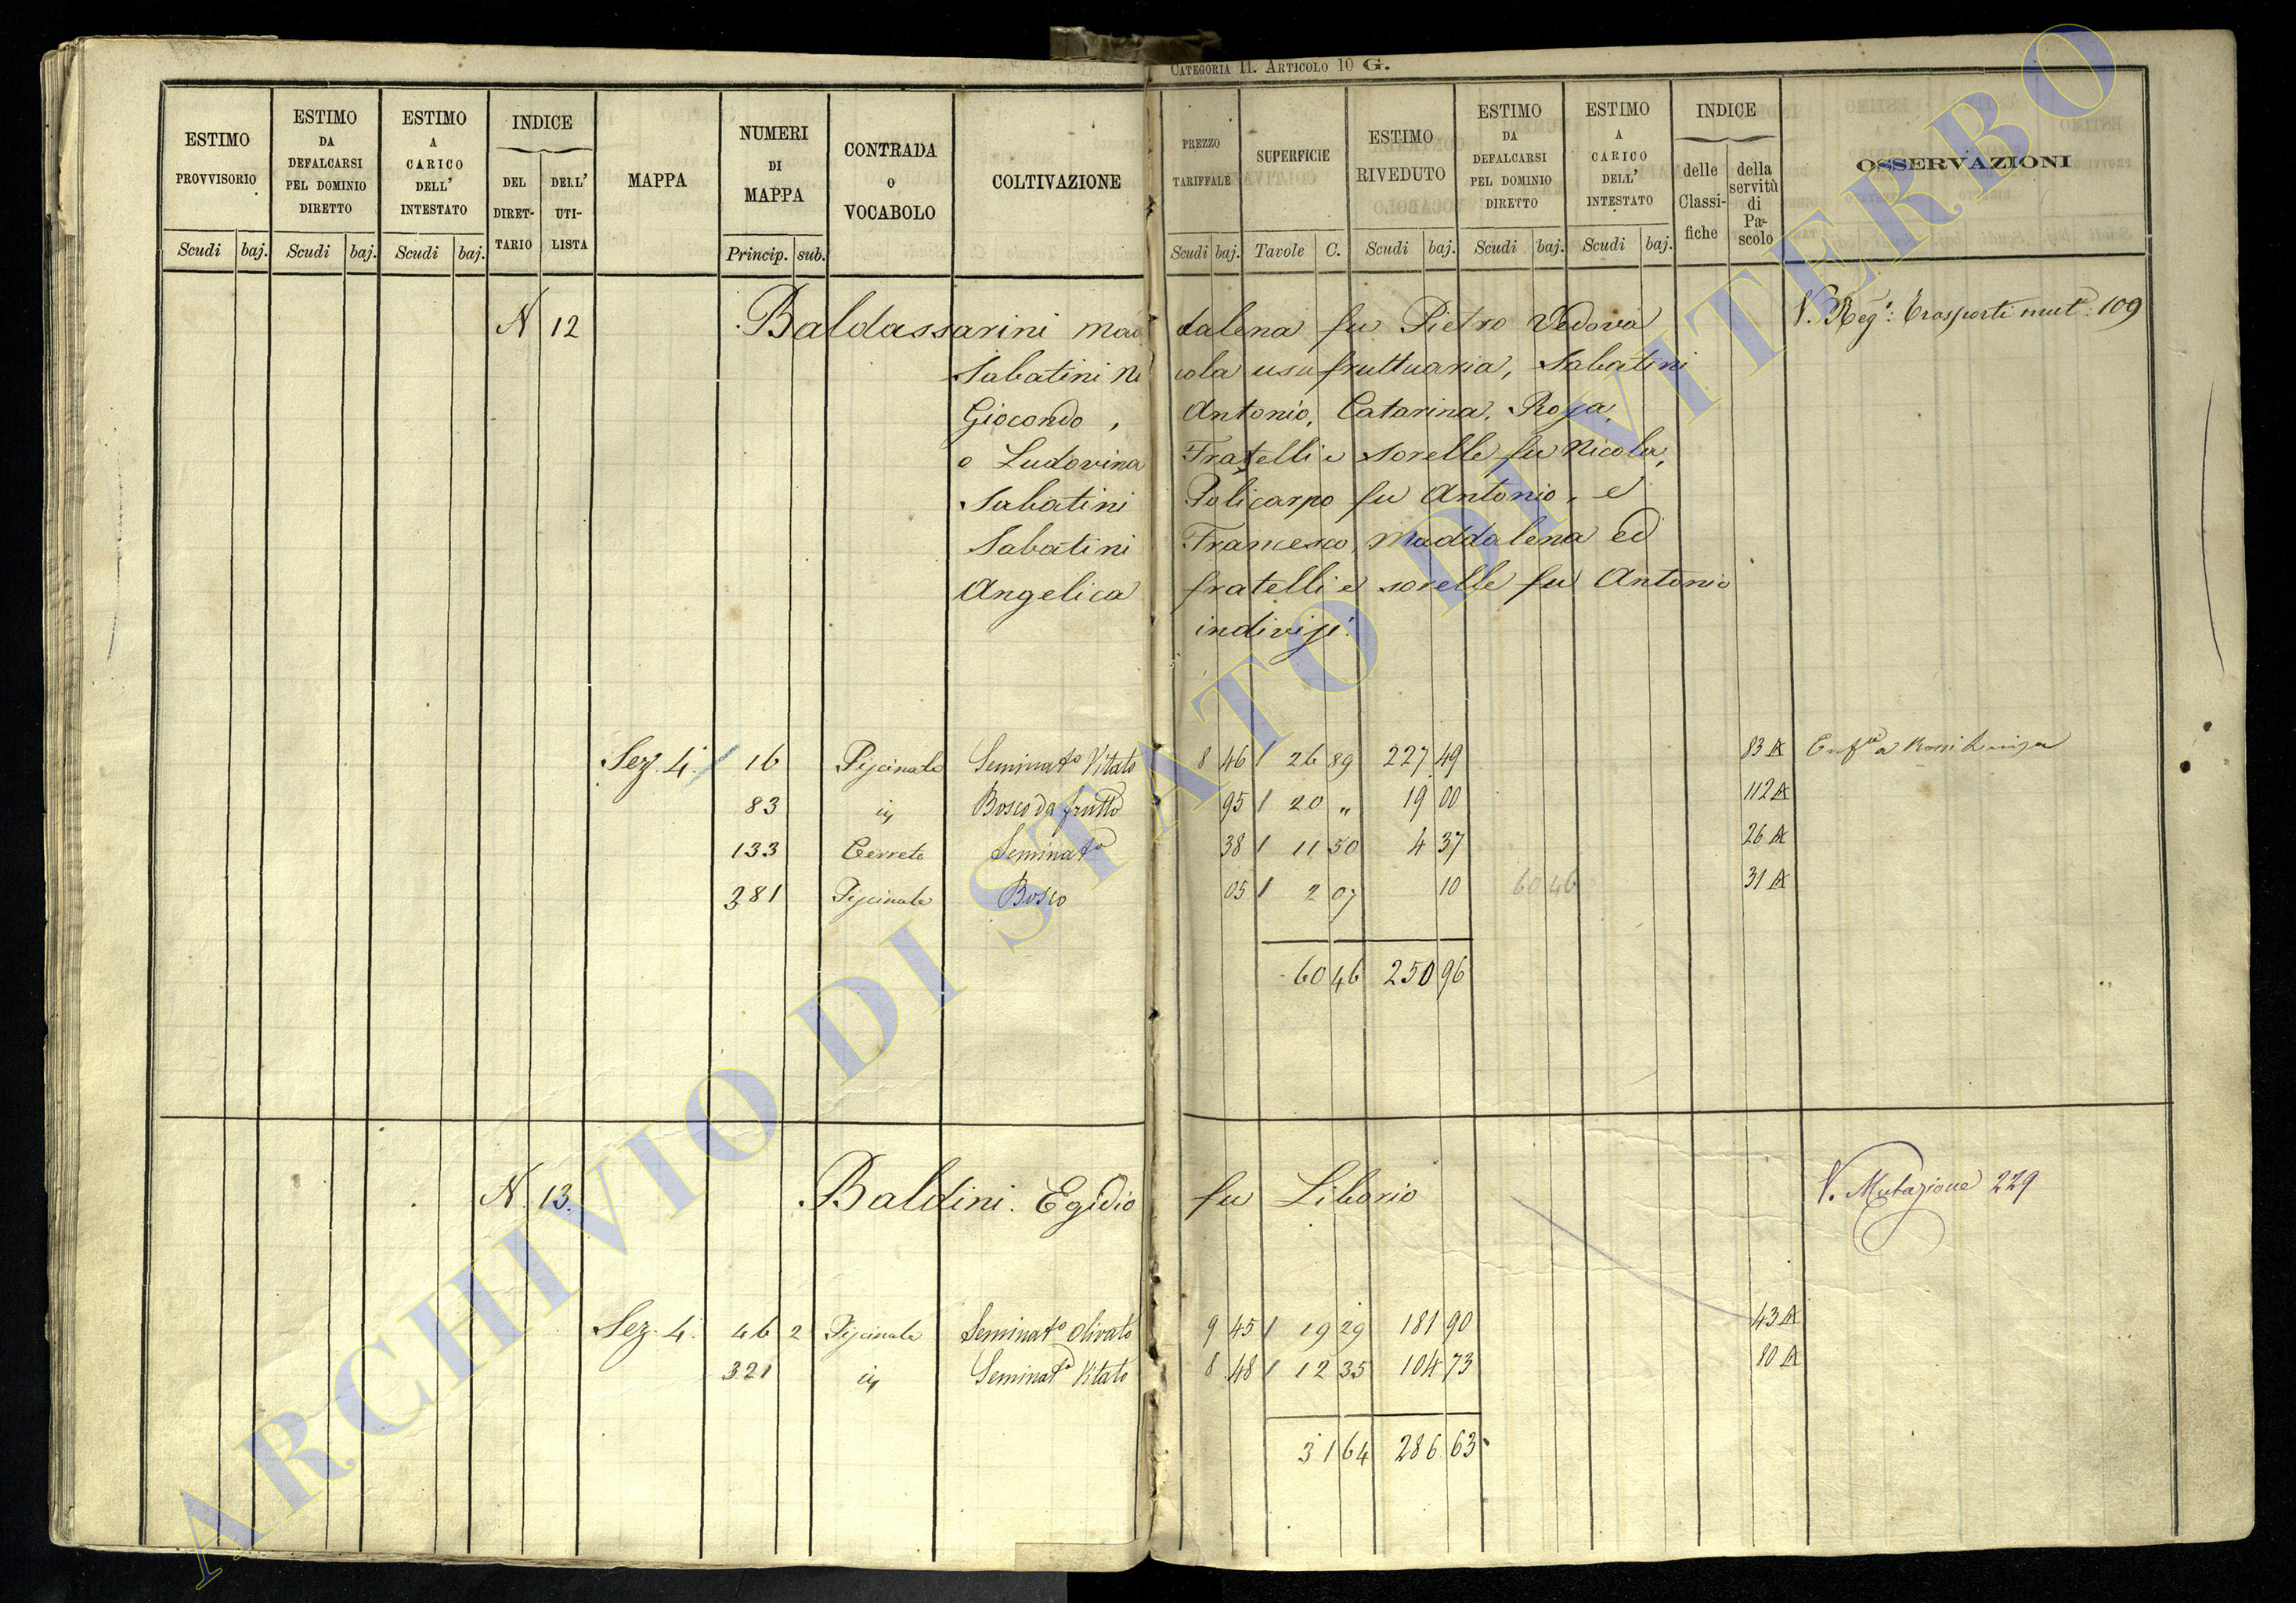 CATEGORIA II. ARTICOLO 10 G.
ESTIMO PROVVISORIO
ESTIMO DA DEFALCARSI PEL DOMINIO DIRETTO
ESTIMO A CARICO DELL' INTESTATO
INDICE
DEL DIRET-TARIO
DELL' UTI-LISTA
MAPPA
NUMERI DI MAPPA
CONTRADA O VOCABOLO
COLTIVAZIONE
PREZZO TARIFFALE
SUPERFICIE
ESTIMO RIVEDUTO
ESTIMO DA DEFALCARSI PEL DOMINIO DIRETTO
ESTIMO A CARICO DELL' INTESTATO
INDICE
delle Classi-fiche
della servitù di Pa-scolo
OSSERVAZIONI
Scudi baj. Scudi baj. Scudi baj. Princip. sub. Scudi baj. Tavole C. Scudi baj. Scudi baj. Scudi baj.
N 12 Baldassarini Mad dalena fu Pietro Vedova V. Reg: Trasporti mut: 109
Sabatini Ni cola usufruttuaria, Sabatini
Giocondo, Antonio, Catarina, Rosa,
e Ludovina Fratelli e sorelle fu Nicola,
Sabatini Policarpo fu Antonio, e
Sabatini Francesco, Maddalena ed
Angelica fratelli e sorelle fu Antonio
indivisi.
Sez. 4. 16 Piscinale Seminato Vitato 8 46 26 89 227 49 83 a Rossi Luisa
83 id Bosco da frutto 95 20 „ 19 00 112
133 Cerrete Seminato 38 11 50 4 37 26
281 Piscinale Bosco 05 2 07 10 60 46 31
60 46 250 96
N. 13. Baldini Egidio fu Liborio V. Mutazione 229
Sez. 4. 46 2 Piscinale Seminato Olivato 9 45 19 29 181 90 43
321 id Seminato Vitato 8 48 12 35 104 73 80
31 64 286 63
ARCHIVIO DI STATO DI VITERBO